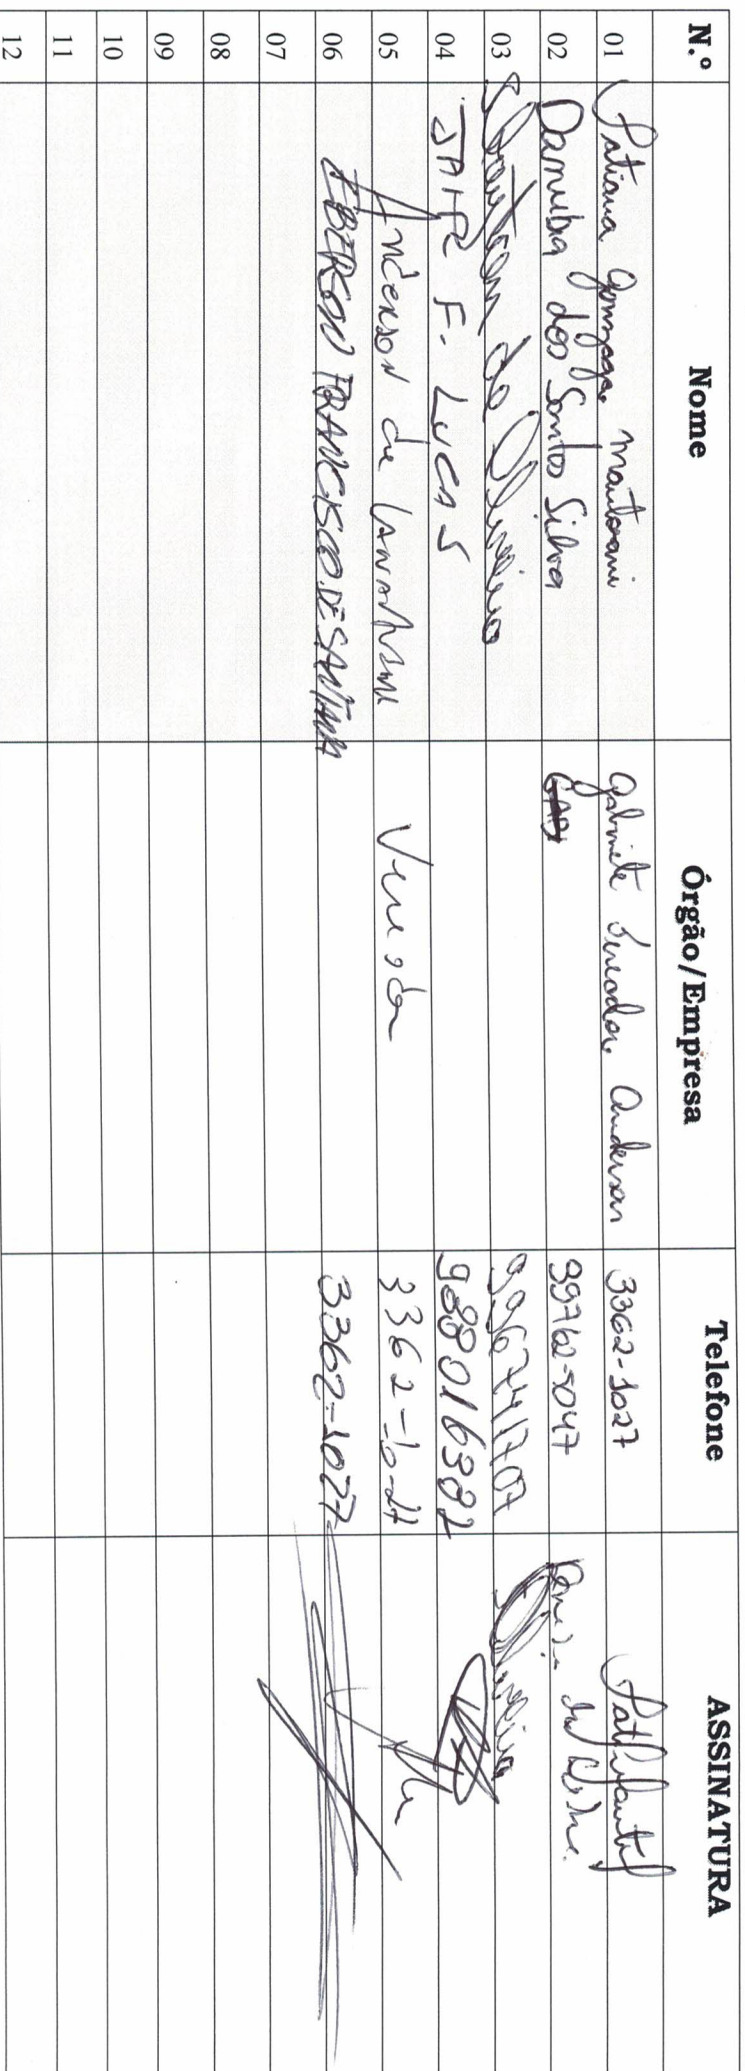 N.º Nome Órgão/Empresa Telefone ASSINATURA
01 Tatiana Gonzaga Gabinete Vereador Anderson 3362-1027
02 Danubia dos Santos Silva GAB 99762-5047
03 de Oliveira 996741707 Oliveira
04 JAIR F. LUCAS 988016382
05 Anderson de Vereador 3362-1027
06 EBERSON FRANCISCO DE SANTANA 3362-1027
07
08
09
10
11
12